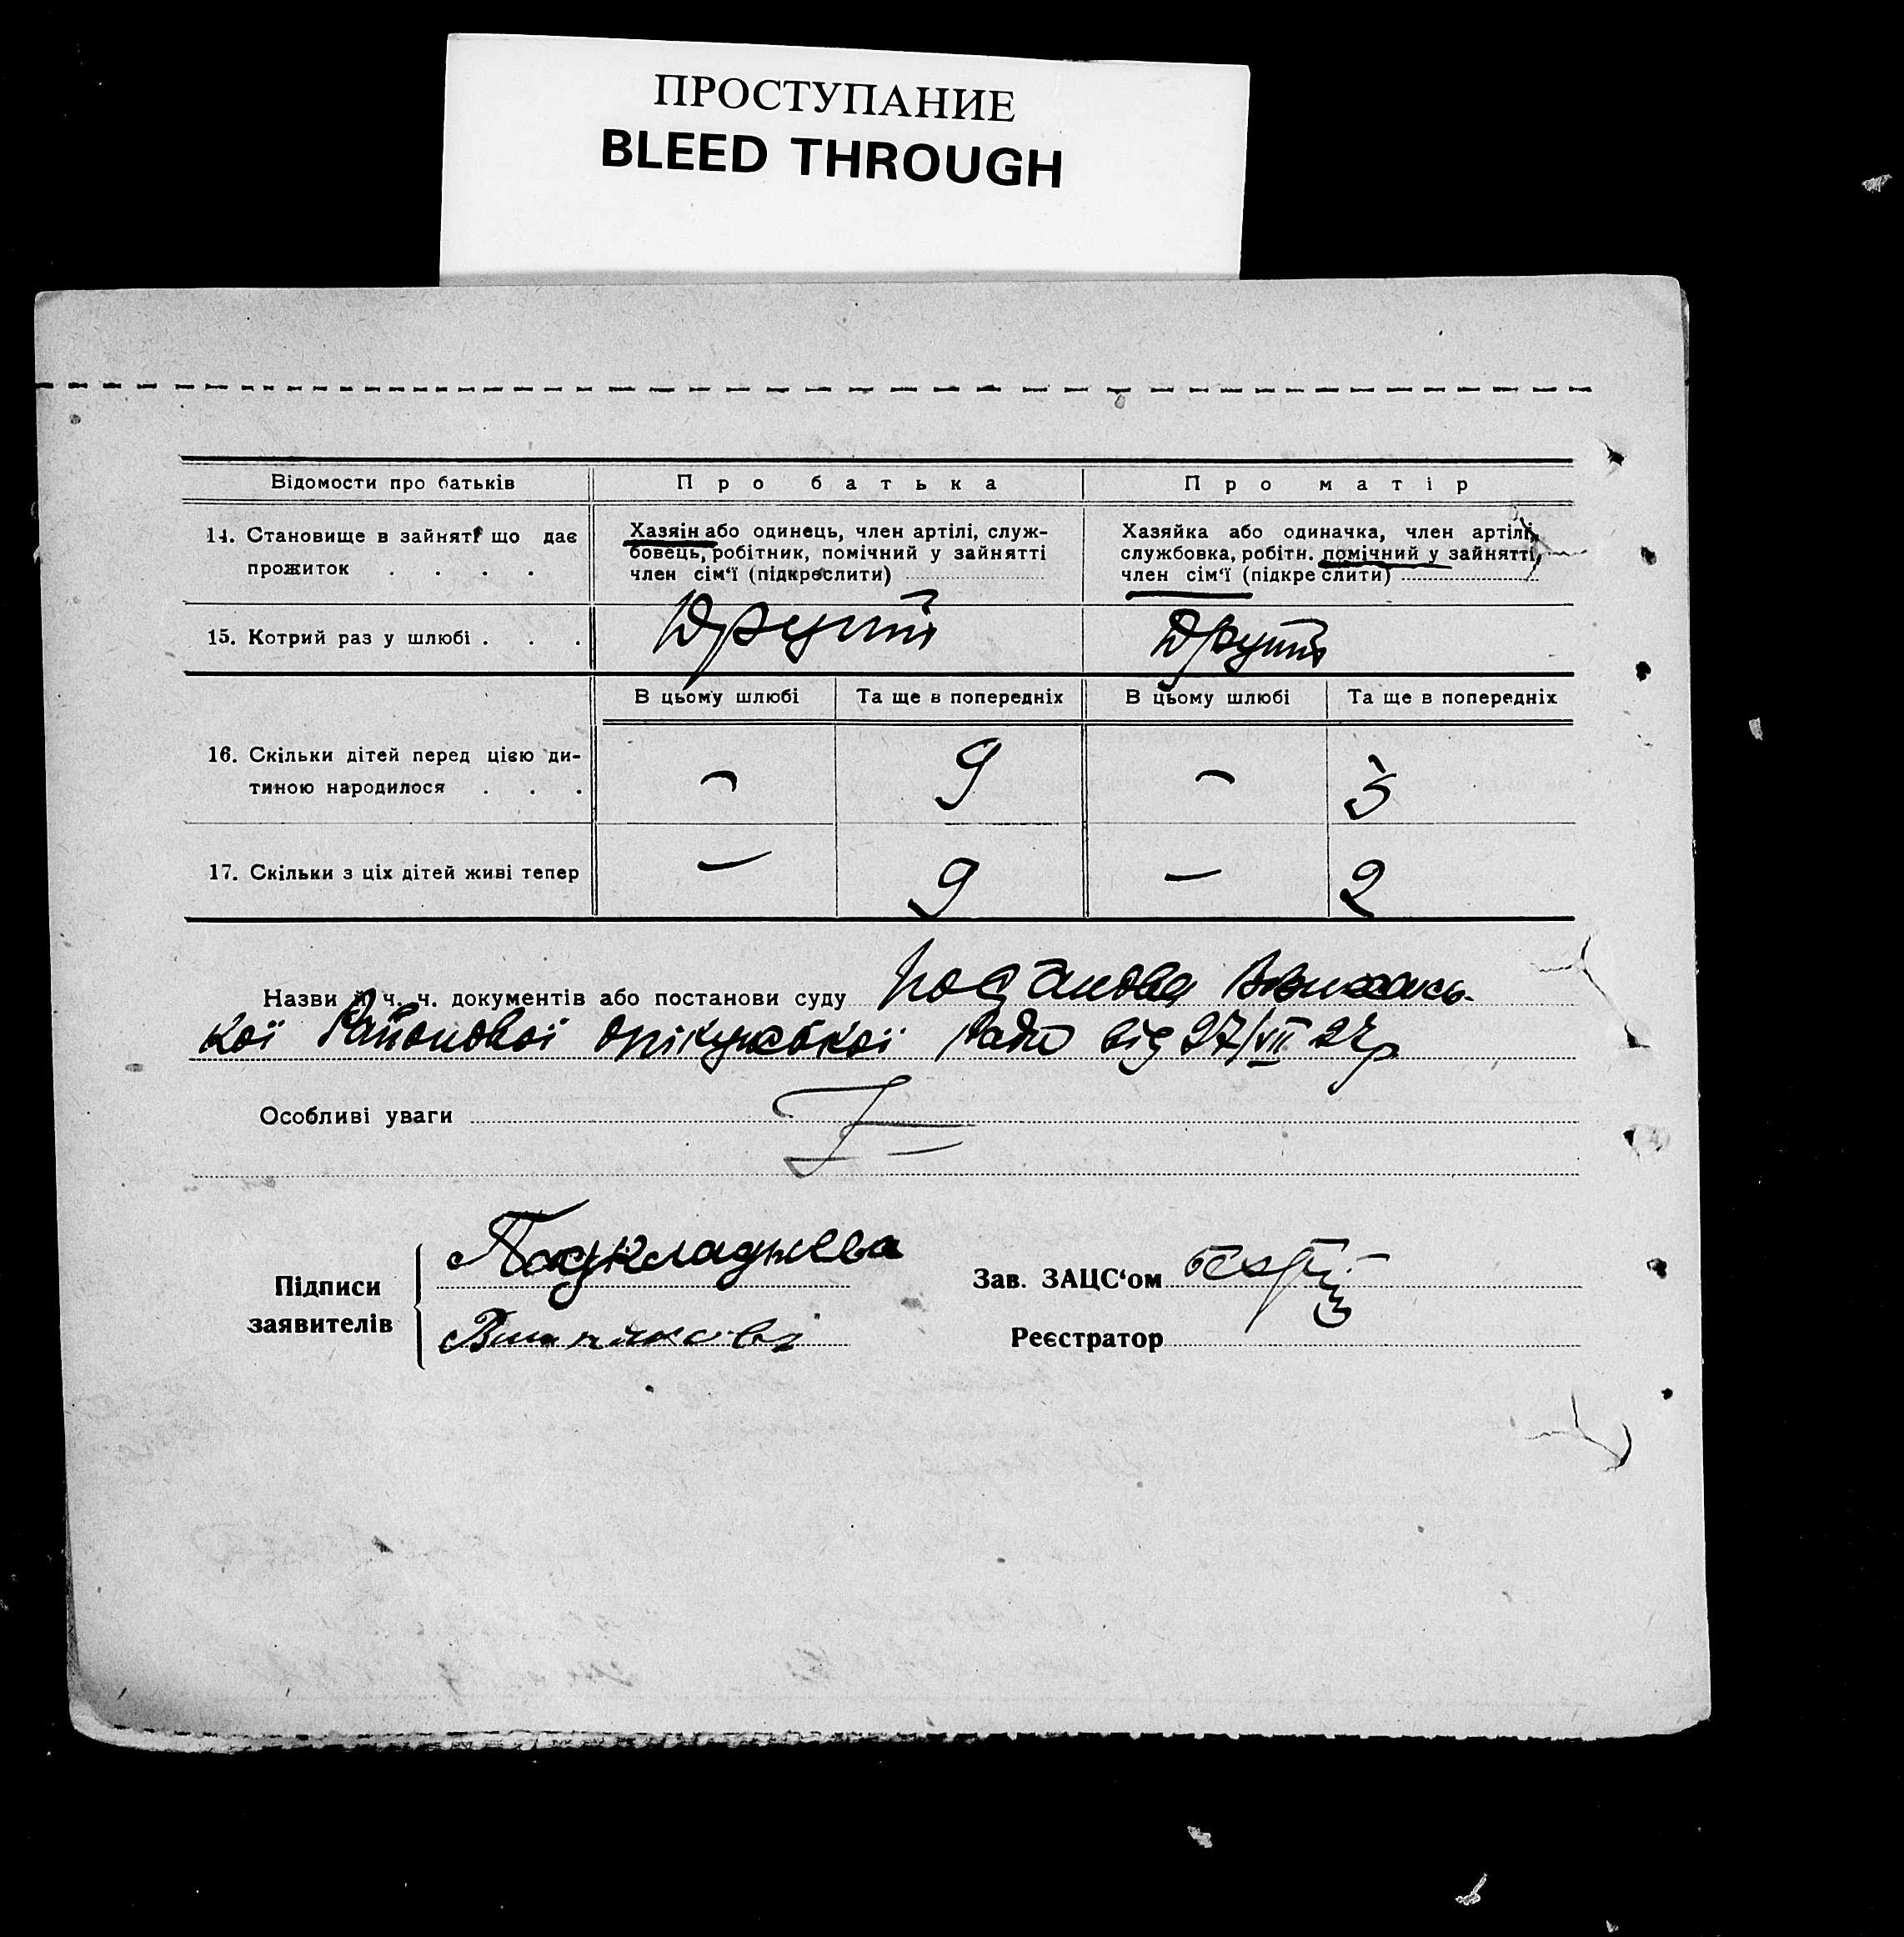 ПРОСТУПАНИЕ
BLEED THROUGH
Відомости про батьків Про батька Про матір
14. Становище в зайняті що дає прожиток . . . .
Хазяін або одинець, член артілі, служ-
бовець, робітник, помічний у зайнятті
член сім'ї (підкреслити)
Хазяйка або одиначка, член артілі,
службовка, робітн. помічний у зайнятті,
член сім'ї (підкреслити)
15. Котрий раз у шлюбі . . . Другий Другий
В цьому шлюбі Та ще в попередніх В цьому шлюбі Та ще в попередніх
16. Скільки дітей перед цією ди-
тиною народилося . . . — 9 — 3
17. Скільки з ціх дітей живі тепер — 9 — 2
Назви й ч. ч. документів або постанови суду
кої Районової опікунської Ради від 27/VII 27р
Особливі уваги
Підписи
заявителів
Зав. ЗАЦС'ом
Реєстратор